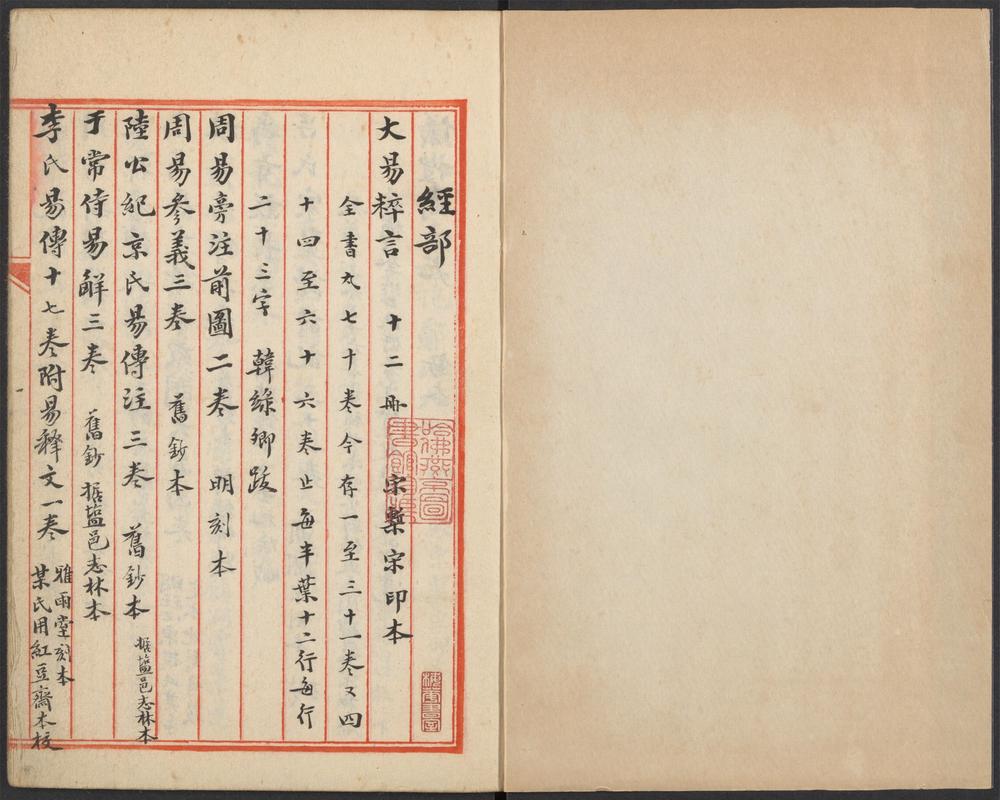 經部
大易粹言 十二冊 宋槧宋印本
全書九七十卷今存一至三十一卷又四
十四至六十六卷止每半葉十二行每行
二十三字 韓綠卿跋
周易旁注前圖二卷 明刻本
周易參義三卷 舊鈔本
陸公紀京氏易傳注三卷 舊鈔本 據鹽邑志林本
于常侍易解三卷 舊鈔 據鹽邑志林本
李氏易傳十七卷附易釋文一卷 雅雨堂刻本
某氏用紅豆齋本校